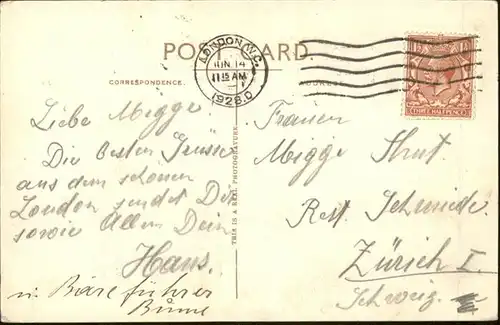 POST CARD.
LONDON. W.C.
JUN 14
11 15 AM
1928. D
THREE HALFPENCE
CORRESPONDENCE.
ADDRESS
Liebe Migge
Die besten Grüsse
aus dem schönen
London sendet Dir
sowie Allen Dein
Hans.
u. Bäreführer
THIS IS A REAL PHOTOGRAPH.
Migge
Rest. Schmiede.
Zürich I.
Schweiz.